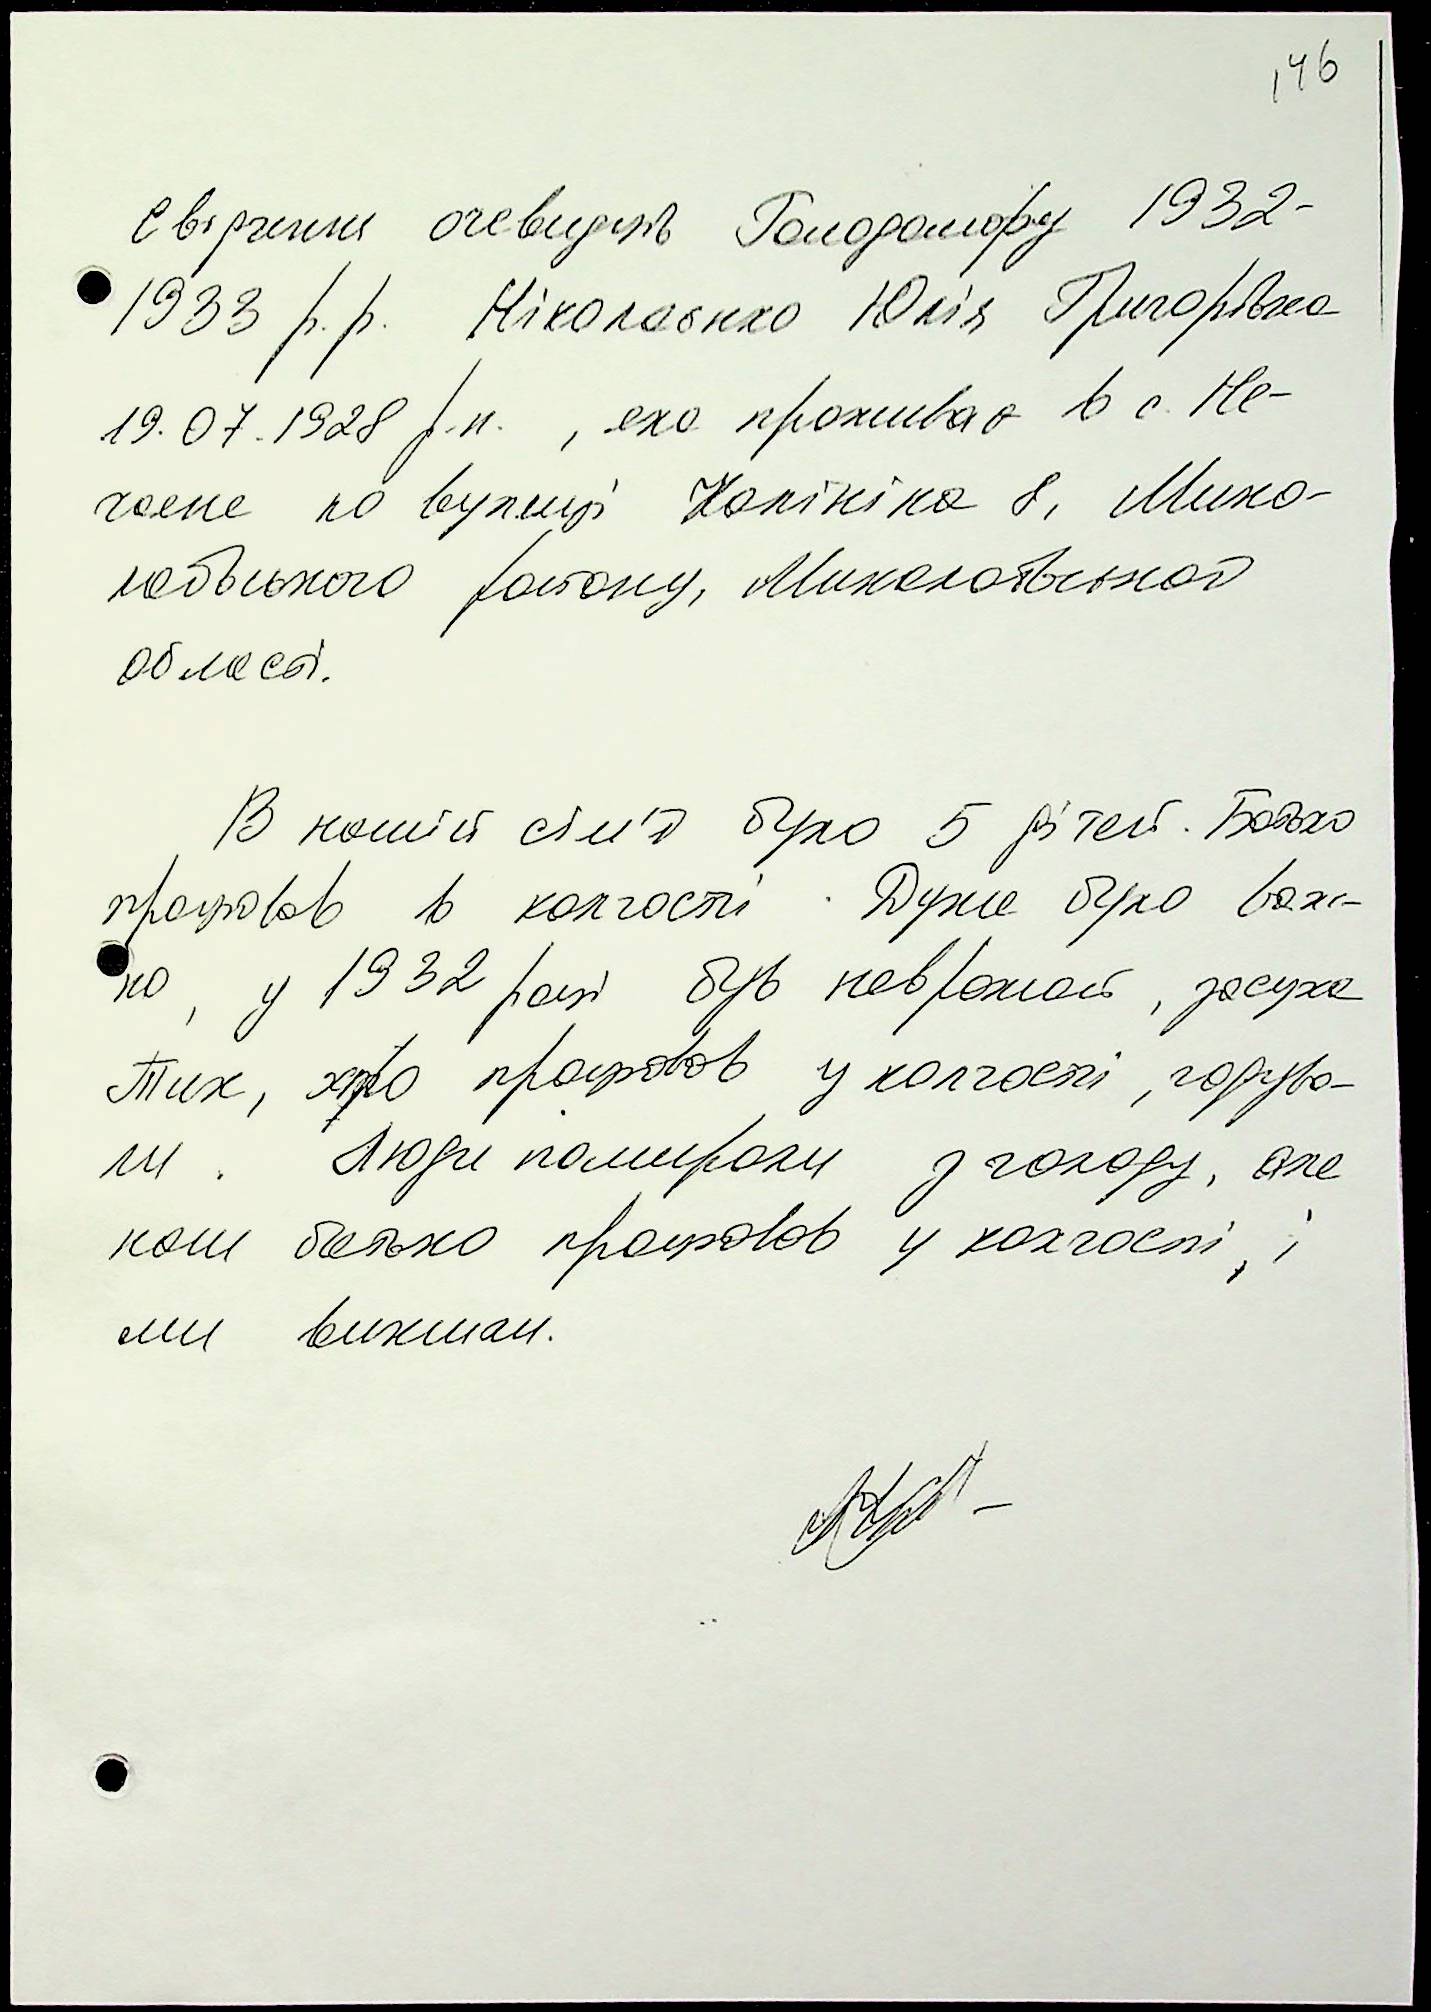 146
Свідчення очевидців Голодомору 1932-
1933 р.р. Ніколаєнко Юлія Григорівна
19.07.1928 р.н., яка проживає в с. Не-
чаяне по вулиці Калініна 8, Мико-
лаївського району, Миколаївської
області.
В нашій сім'ї було 5 дітей. Батько
працював в колгоспі. Дуже було важ-
ко, у 1932 році був неврожай, засуха
Тих, хто працював у колгоспі, годува-
ли. Люди помирали з голоду, але
наш батько працював у колгоспі, і
ми вижили.